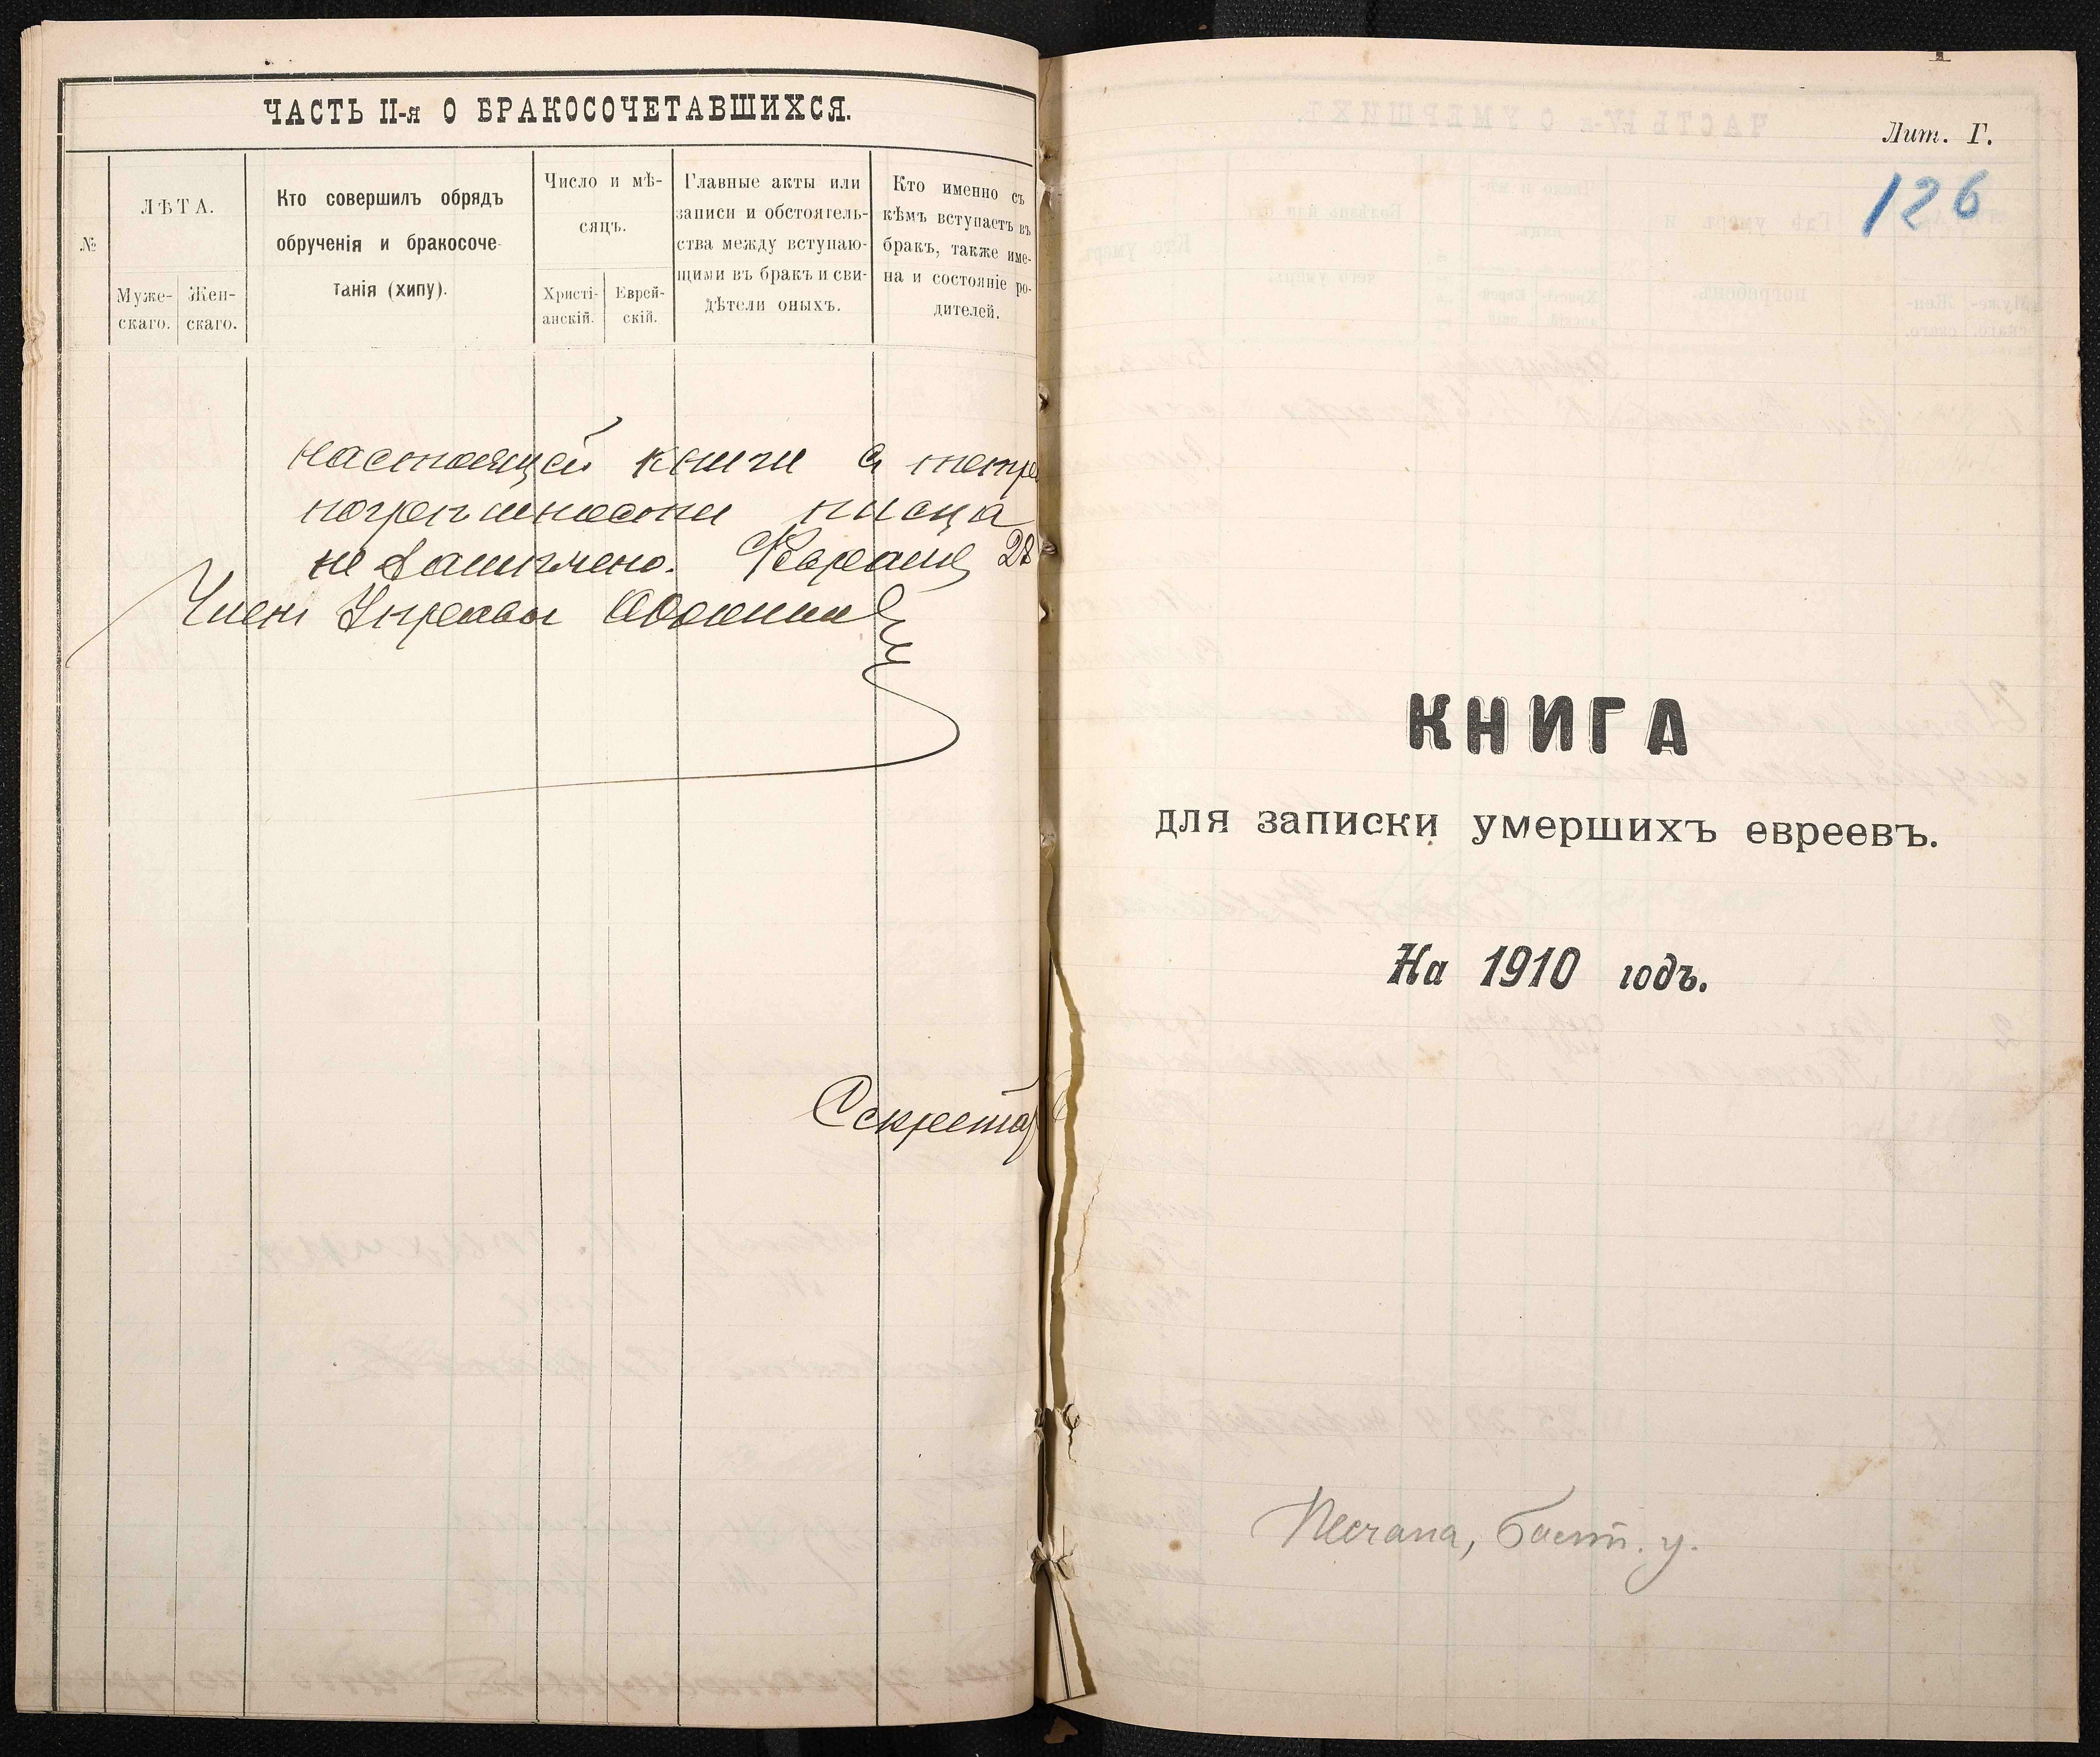 ЧАСТЬ II-я О БРАКОСОЧЕТАВШИХСЯ.
№
ЛѢТА.
Муже-
скаго.
Жен-
скаго.
Кто совершилъ обрядъ
обрученія и бракосоче-
танія (хипу).
Число и мѣ-
сяцъ.
Христі-
анскій.
Еврей-
скій.
Главные акты или
записи и обстоятель-
ства между вступаю-
щими въ бракъ и сви-
дѣтели оныхъ.
Кто именно съ
кѣмъ вступаетъ въ
бракъ, также име-
на и состояніе ро-
дителей.
настоящей книги
погрѣшности писца
не
28
Членъ Управы
Секретар
Лит. Г.
126
КНИГА
для записки умершихъ евреевъ.
На 1910 годъ.
Песчана, балт. у.